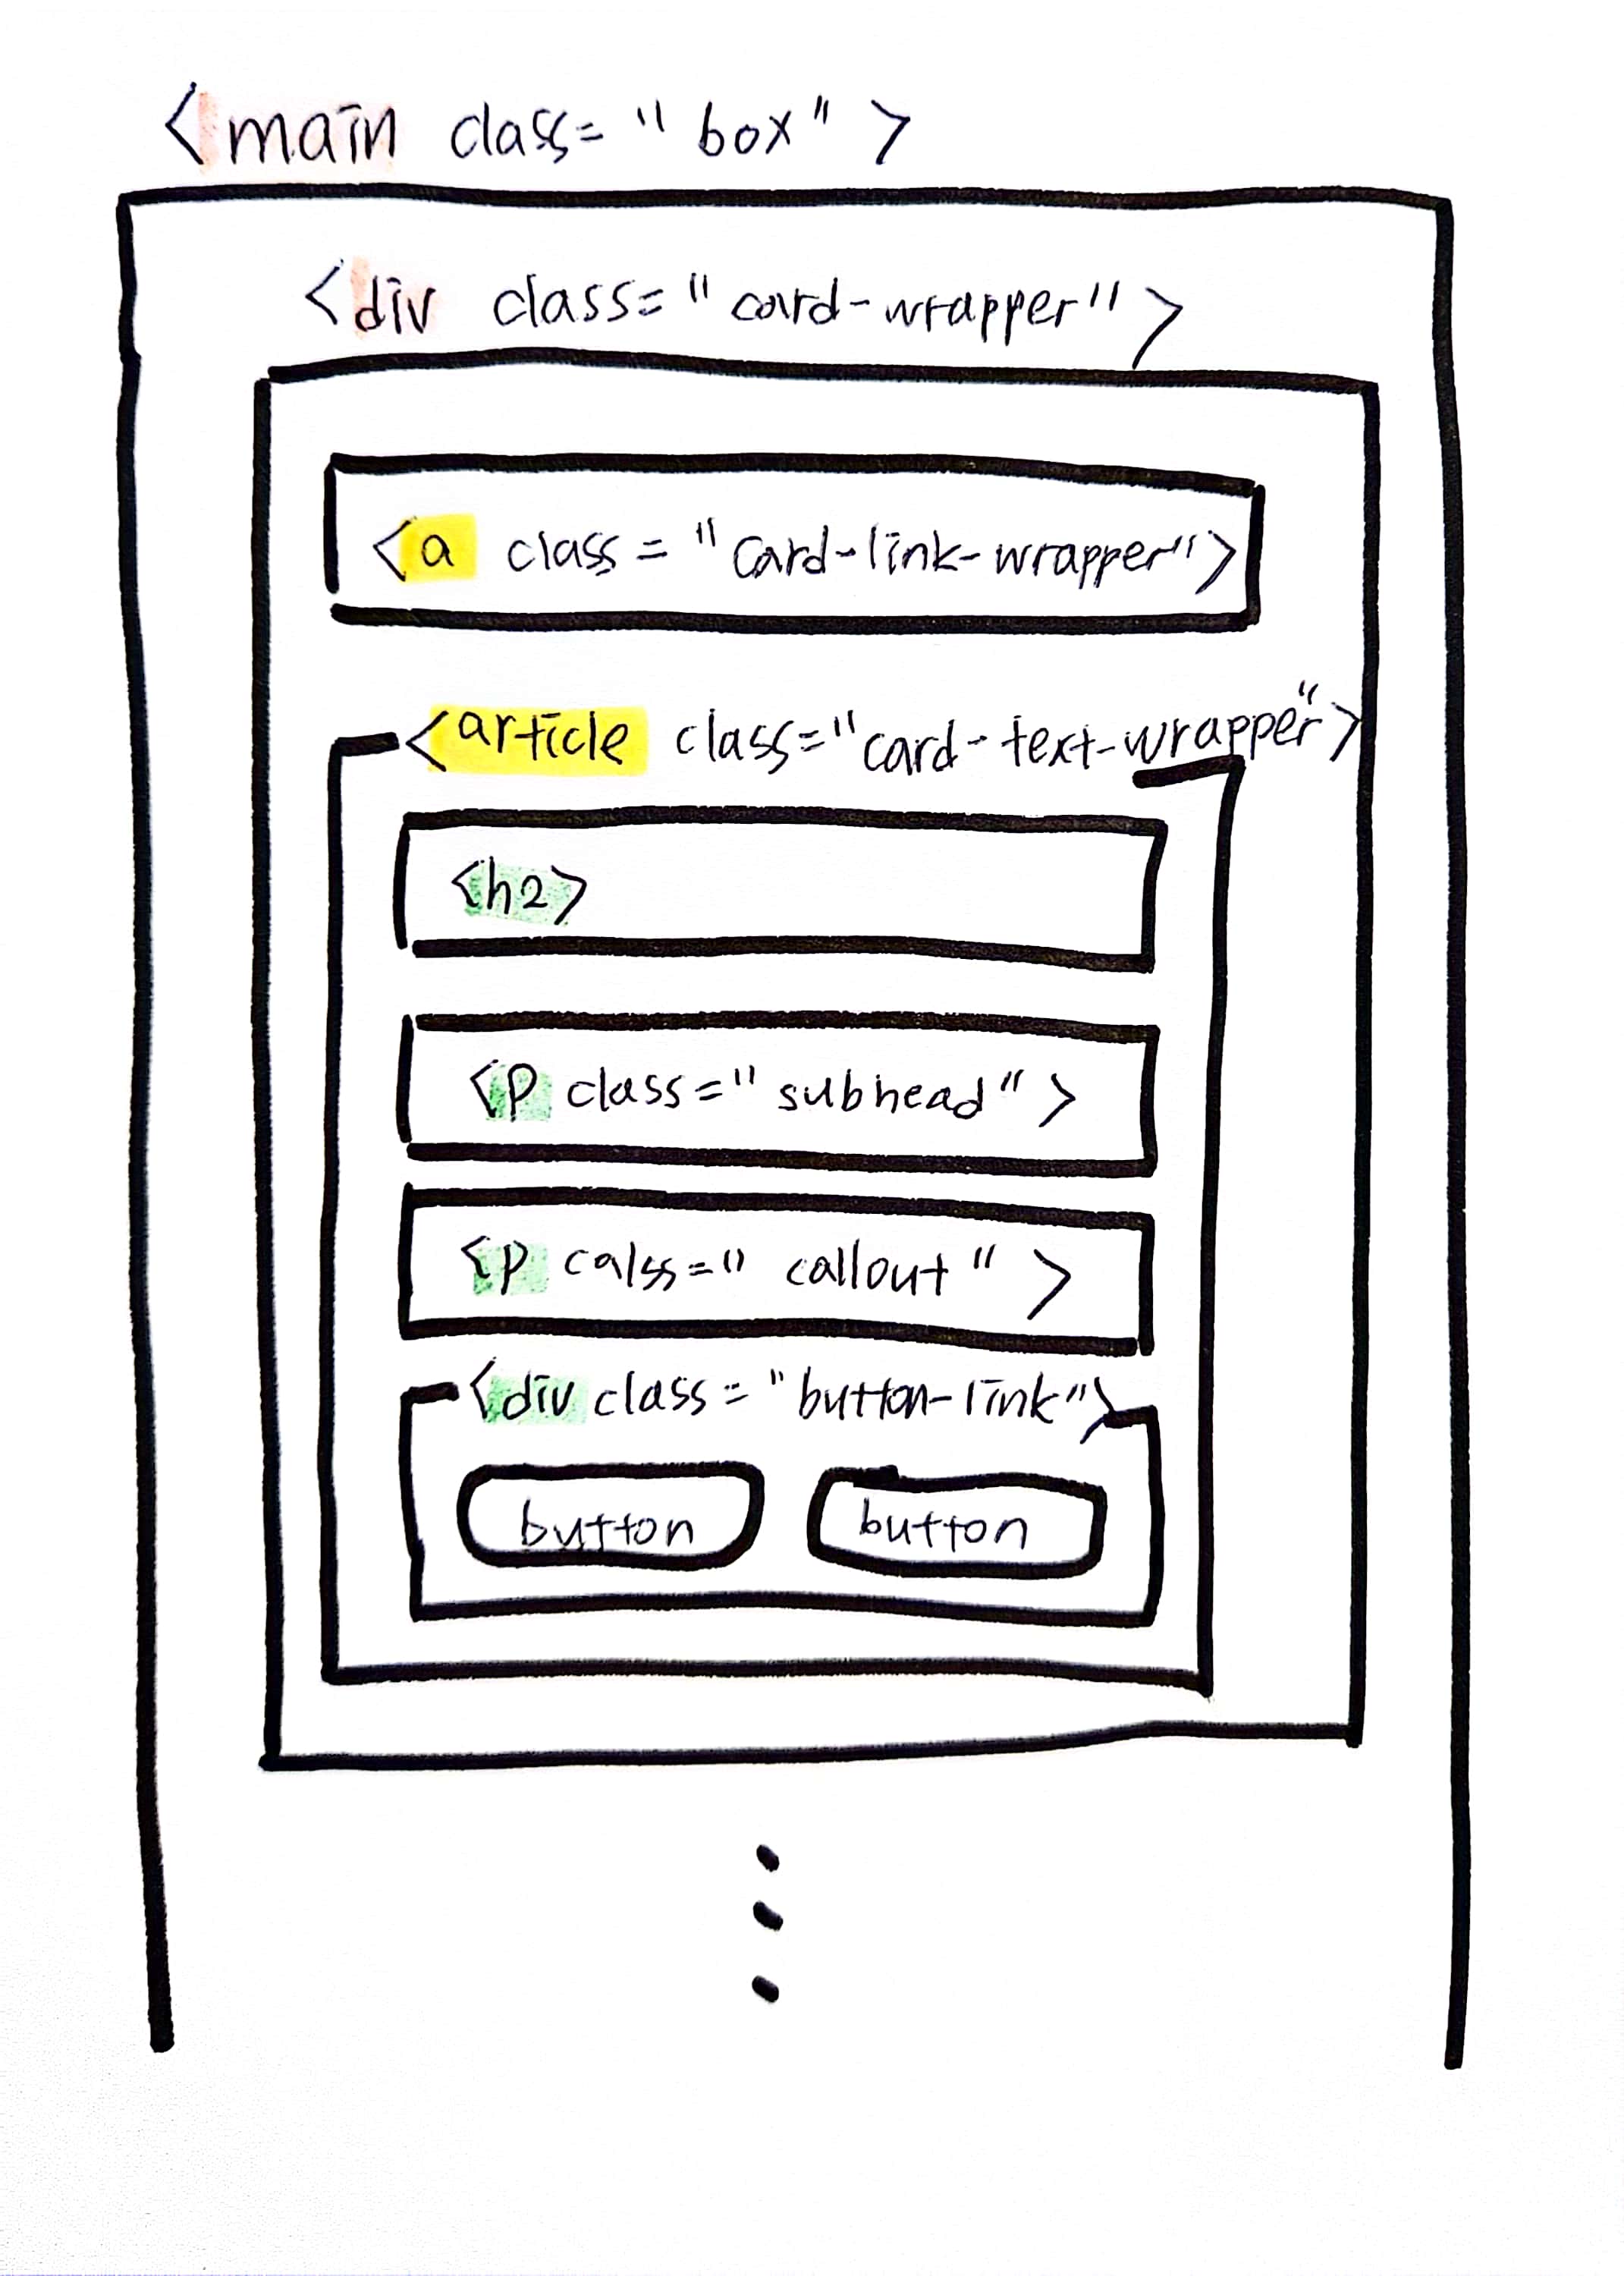 <main class="box">
<div class="card-wrapper">
<a class="card-link-wrapper">
<article class="card-text-wrapper">
<h2>
<p class="subhead">
<p calss="callout">
<div class="button-link">
button button